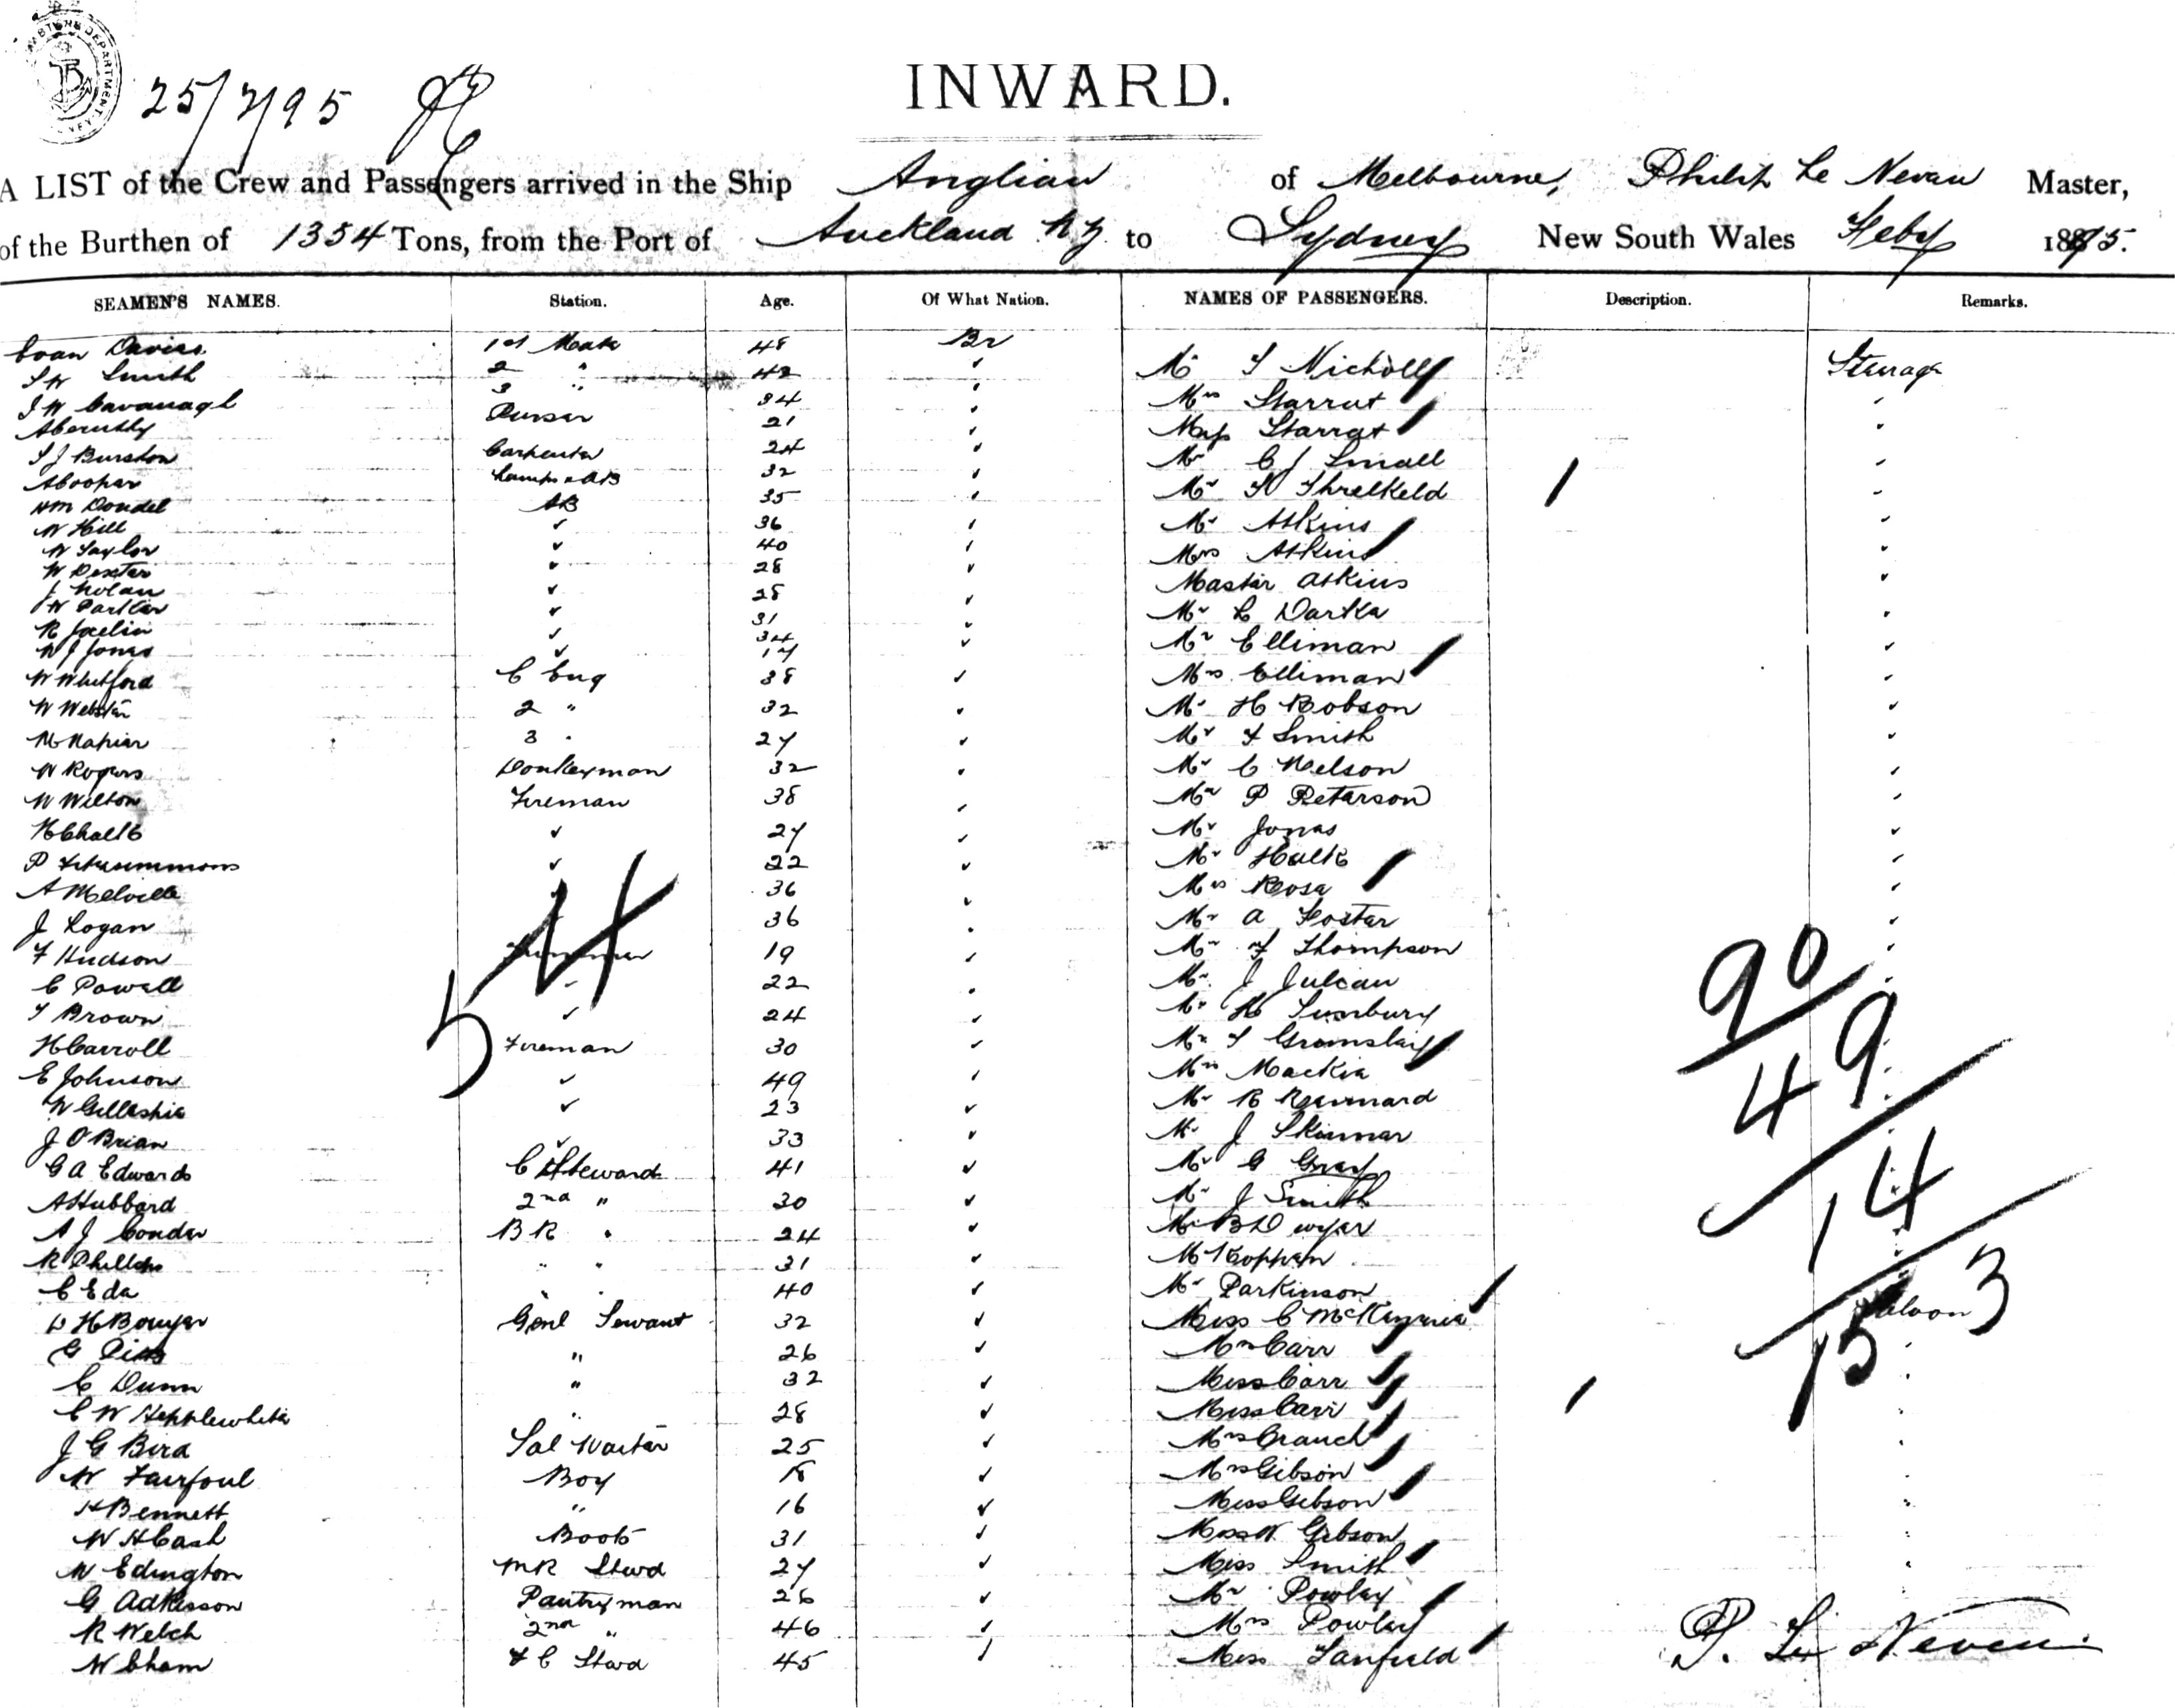 25/2/95
INWARD.
A LIST of the Crew and Passengers arrived in the Ship Anglian of Melbourne, Philip Le Neveu Master,
of the Burthen of 1354 Tons, from the Port of Auckland NZ to Sydney New South Wales Feby 1895.
SEAMEN'S NAMES. Station. Age. Of What Nation. NAMES OF PASSENGERS. Description. Remarks.
Evan Davies 1st Mate 48 Br Mr T Nicholls Steerage
S W Smith 2 " 42 Mrs Starrat
J W Cavanagh 3 " 34 Miss Starrat
Abernethy Purser 21 Mr C J Small
S J Burston Carpenter 24 Mr Threlkeld
A Cooper Lamps & AB 32 Mr Atkins
Hm Dondel AB 35 Mrs Atkins
W Hill 36 Master Atkins
W Taylor 40 Mr
W Dexter 28 Mr Elliman
J Nolan 28 Mrs Elliman
W 31 Mr H Robson
R Joclin 34 Mr F Smith
W J Jones 17 Mr C Nelson
W Whitford C Eng 38 Mr P Peterson
W Webster 2 " 32 Mr Jones
Napier 3 " 27 Mr
W Rogers Donkeyman 32 Mrs Rose
W Wilton Fireman 38 Mr A Foster
H 27 Mr F Thompson
P Fitzsimmons 22 Mr J Julian
A Melville 36 Mr H Sunbury
J Logan 36 Mr
F Hudson Trimmer 19 Mrs Mackie
C Powell 22 Mr R
T Brown 24 Mr J Skinner
H Carroll Fireman 30 Mr G Gray
E Johnson 49 Mr J Smith
W Gillespie 23 Mr B Dwyer
J O Brien 33 Mr
G A Edwards C Steward 41 Mr Parkinson
A Hubbard 2nd " 30 Miss C McKenzie Saloon
A J Conder BR " 24 Mrs Carr
R Phillips " " 31 Miss Carr
C Ede " 40 Miss Carr
H Bowyer Genl Servant 32 Mrs Crauch
G " 26 Mrs Gibson
C Dunn " 32 Miss Gibson
C W Hepplewhite " 28 Miss W. Gibson
J G Bird Sal Waiter 25 Miss Smith
W Fairfoul Boy 18 Mr Powley
H Bennett " 16 Mrs Powley
W H Cash Boots 31 Miss Fanfield
W Edington MR Stwd 27
G Adkisson Pantryman 26
R Welch 2nd " 46
W Cham F C Stwd 45
54
90
49
14
3
15
P. Le Neveu